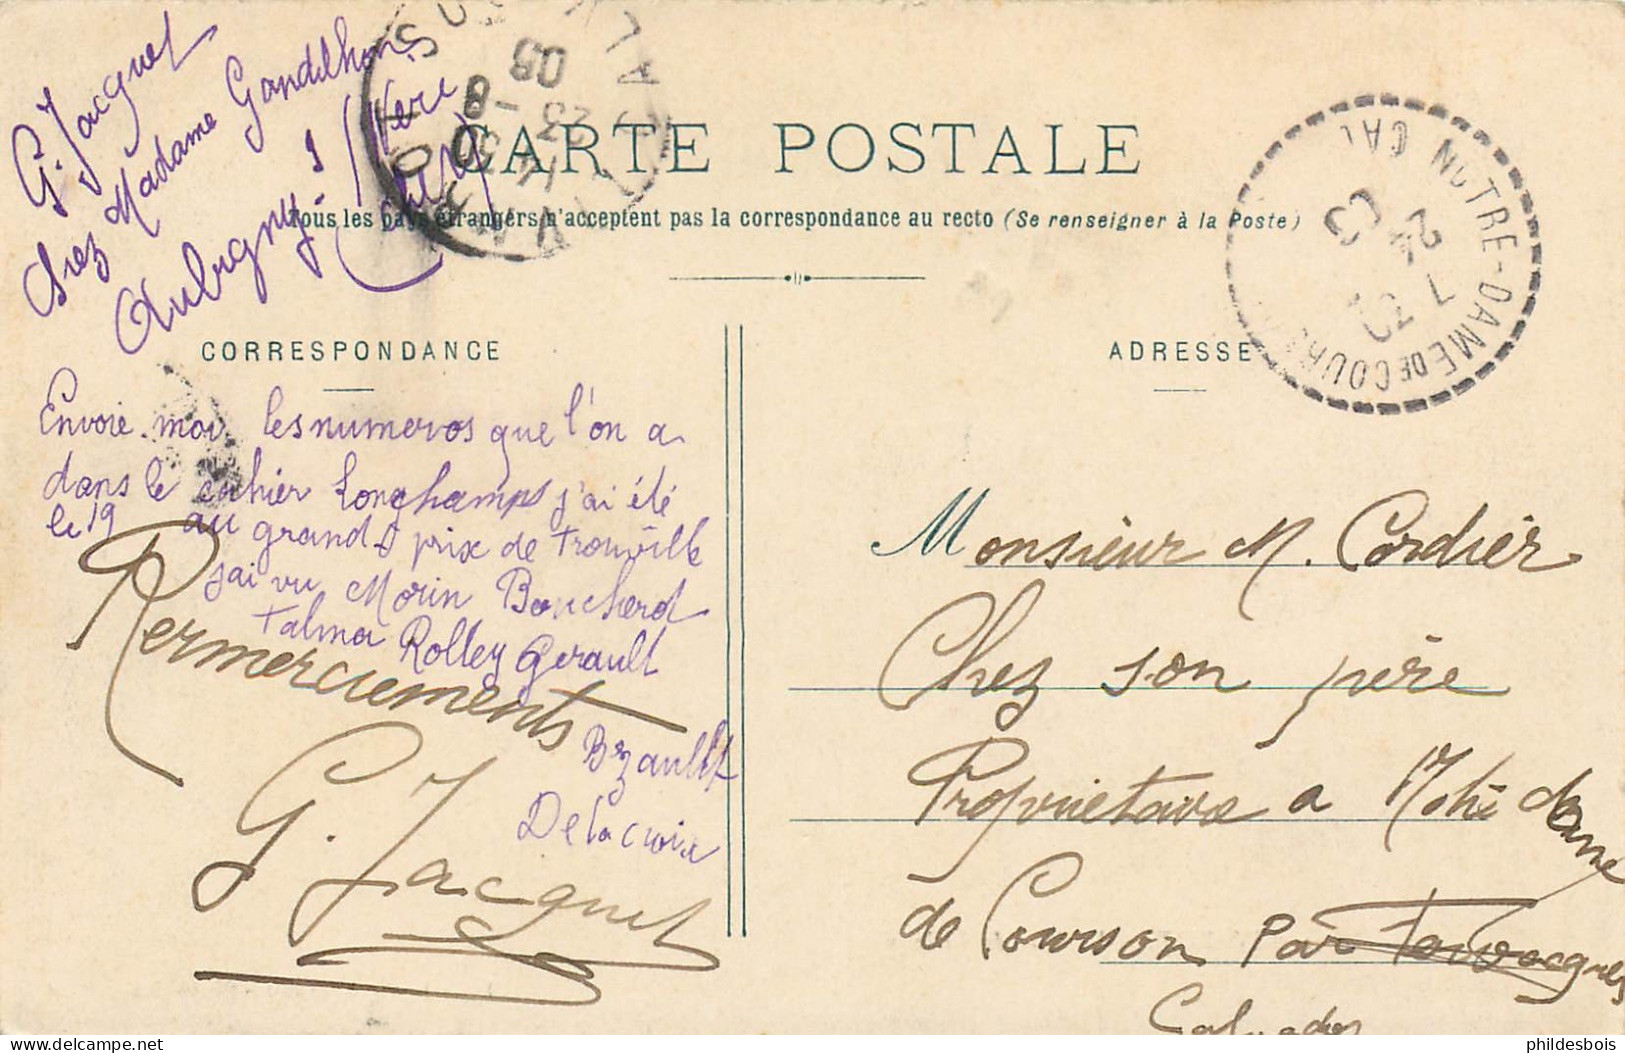 G. Jacquet
chez Madame Gandilhon
Aubigny s/Nere
(Cher)
CARTE POSTALE
Tous les pays étrangers n'acceptent pas la correspondance au recto (Se renseigner à la Poste)
CORRESPONDANCE
Envoie moi les numeros que l'on a
dans le cahier Longchamps j'ai été
le 19 au grand prix de Trouville
j'ai vu Morin Boucherot
Talma Rolley Gerault
Bzault
Delacroix
Remerciements
G. Jacquet
ADRESSE
NOTRE-DAME DE COURSON CAL
Monsieur M. Cordier
Chez son père
Propriétaire a Notre dame
de Courson par
Calvados
phildesbois